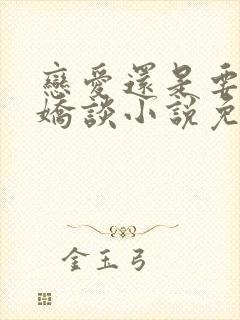 戀愛還是要
嬌談小說免
金玉弓